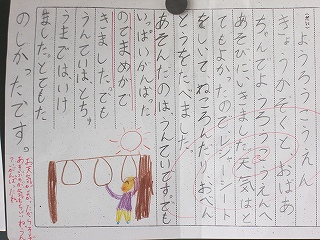 ようろうこうえん
きょう、かぞくとおばあ
ちゃんでようろうこうえんへ
あそびにいきました。天気はと
てもよかったので、レジャーシート
をしいて、ねころんだり、おべん
とうをたべました。
あそんだのは、うんていです。でも
いっぱいがんばった
のでまめがで
きました。でも
うんていは、とちゅ
うまでは、いけ
ました。とてもた
のしかったです。